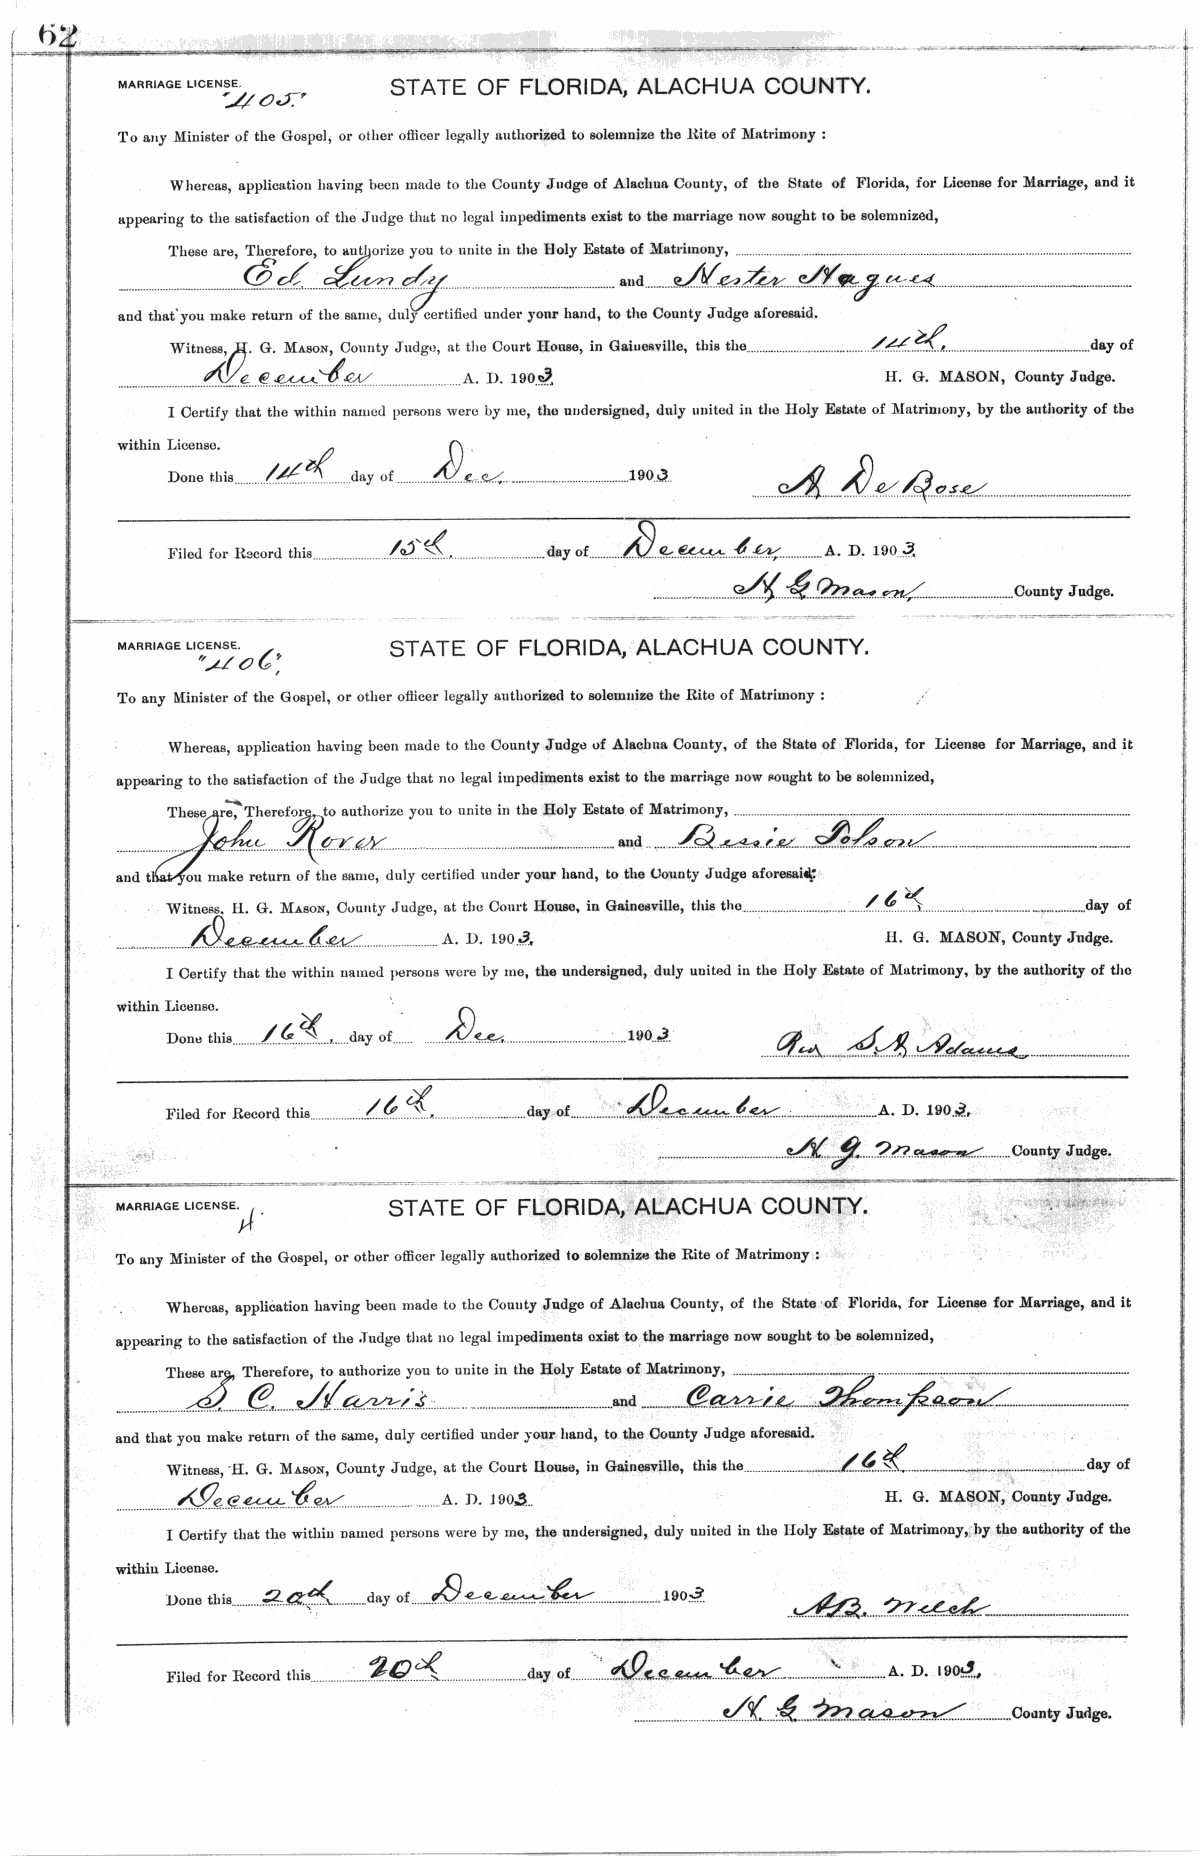 62
MARRIAGE LICENSE. STATE OF FLORIDA, ALACHUA COUNTY.
"405."
To any Minister of the Gospel, or other officer legally authorized to solemnize the Rite of Matrimony :
Whereas, application having been made to the County Judge of Alachua County, of the State of Florida, for License for Marriage, and it
appearing to the satisfaction of the Judge that no legal impediments exist to the marriage now sought to be solemnized,
These are, Therefore, to authorize you to unite in the Holy Estate of Matrimony,
Ed. Lundy and Hester Hagues
and that you make return of the same, duly certified under your hand, to the County Judge aforesaid.
Witness, H. G. MASON, County Judge, at the Court House, in Gainesville, this the 14th. day of
December A. D. 1903. H. G. MASON, County Judge.
I Certify that the within named persons were by me, the undersigned, duly united in the Holy Estate of Matrimony, by the authority of the
within License.
Done this 14th day of Dec. 1903 A. De Bose
Filed for Record this 15th. day of December, A. D. 1903.
H. G. Mason, County Judge.
MARRIAGE LICENSE. STATE OF FLORIDA, ALACHUA COUNTY.
"406",
To any Minister of the Gospel, or other officer legally authorized to solemnize the Rite of Matrimony :
Whereas, application having been made to the County Judge of Alachua County, of the State of Florida, for License for Marriage, and it
appearing to the satisfaction of the Judge that no legal impediments exist to the marriage now sought to be solemnized,
These are, Therefore, to authorize you to unite in the Holy Estate of Matrimony,
John Rover and Bessie Tolson
and that you make return of the same, duly certified under your hand, to the County Judge aforesaid:
Witness, H. G. MASON, County Judge, at the Court House, in Gainesville, this the 16th, day of
December A. D. 1903. H. G. MASON, County Judge.
I Certify that the within named persons were by me, the undersigned, duly united in the Holy Estate of Matrimony, by the authority of the
within License.
Done this 16th. day of Dec. 1903 Rev S. A. Adams
Filed for Record this 16th. day of December A. D. 1903.
H. G. Mason County Judge.
MARRIAGE LICENSE. STATE OF FLORIDA, ALACHUA COUNTY.
4
To any Minister of the Gospel, or other officer legally authorized to solemnize the Rite of Matrimony :
Whereas, application having been made to the County Judge of Alachua County, of the State of Florida, for License for Marriage, and it
appearing to the satisfaction of the Judge that no legal impediments exist to the marriage now sought to be solemnized,
These are, Therefore, to authorize you to unite in the Holy Estate of Matrimony,
S. C. Harris and Carrie Thompson
and that you make return of the same, duly certified under your hand, to the County Judge aforesaid.
Witness, H. G. MASON, County Judge, at the Court House, in Gainesville, this the 16th. day of
December A. D. 1903 H. G. MASON, County Judge.
I Certify that the within named persons were by me, the undersigned, duly united in the Holy Estate of Matrimony, by the authority of the
within License.
Done this 20th day of December 1903 A.B. Welch
Filed for Record this 20th day of December A. D. 1903.
H. G. Mason County Judge.